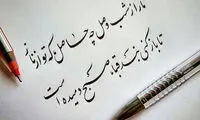 ما را ز شب وصل چه حاصل که تو از ناز
تا باز کنی بند قبا صبح دمیده است